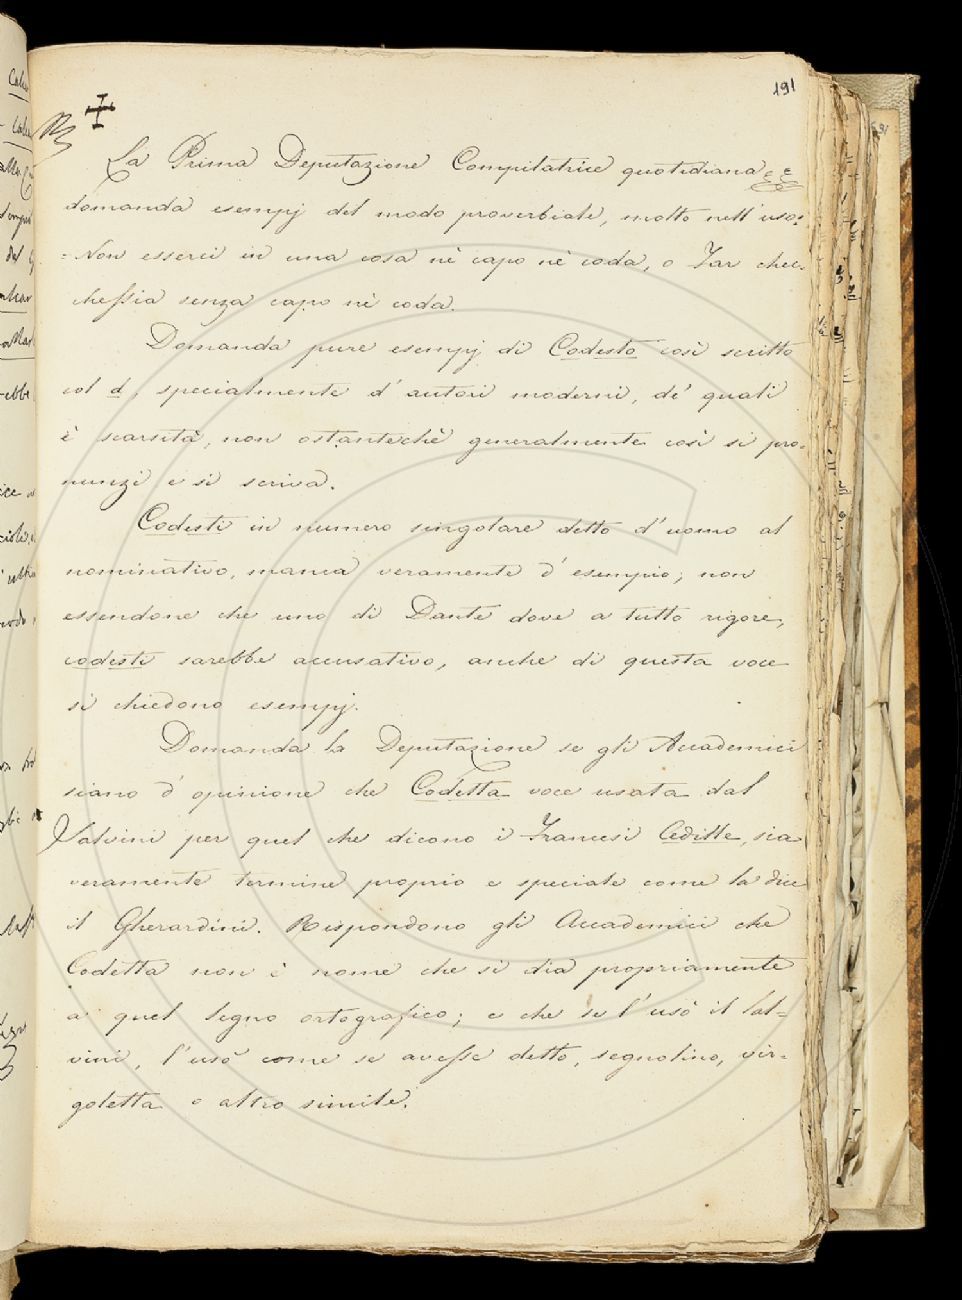 191
La Prima Deputazione Compilatrice quotidiana
domanda esempj del modo proverbiale, molto nell'uso:
=Non esserci in una cosa nè capo nè coda, o Far chec-
chessia senza capo nè coda.
Domanda pure esempj di Codesto così scritto
col d, specialmente d'autori moderni, de' quali
è scarsità, non ostantechè generalmente così si pro-
nunzi e si scriva.
Codesti in numero singolare detto d'uomo al
nominativo, manca veramente d'esempio; non
essendone che uno di Dante dove a tutto rigore,
codesti sarebbe accusativo, anche di questa voce
si chiedono esempj.
Domanda la Deputazione se gli Accademici
siano d'opinione che Codetta voce usata dal
Salvini per quel che dicono i Francesi Cedille, sia
veramente termine proprio e speciale come la dice
il Gherardini. Rispondono gli Accademici che
Codetta non è nome che si dia propriamente
a quel segno ortografico; e che se l'usò il Sal-
vini, l'usò come se avesse detto, segnolino, vir-
goletta o altro simile.